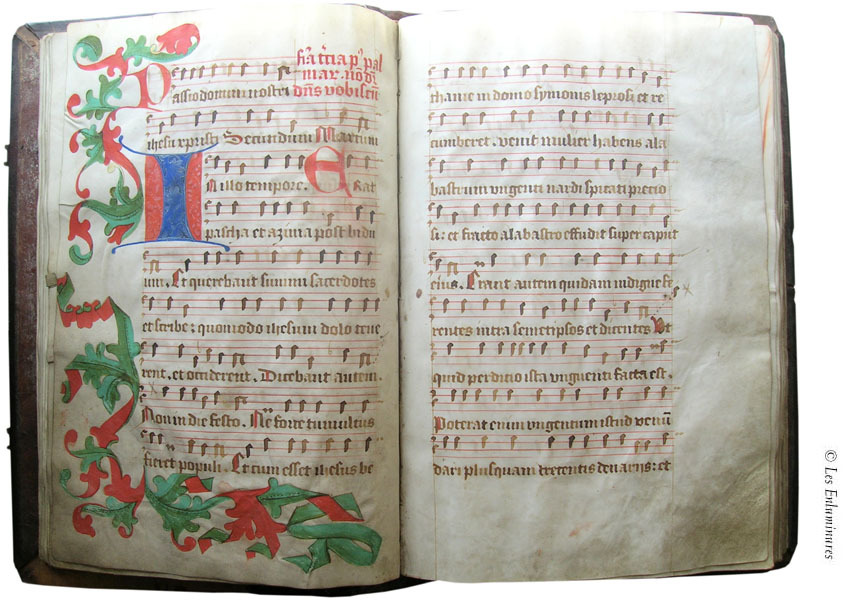 dn̄s vobiscū
Passio domini nostri
ihesu xpristi Secundum Marcum
In illo tempore. Erat
pascha et azima post bidu
um. Et querebant summi sacerdotes
et scribe: quomodo ihesum dolo tene
rent. et occiderent. Dicebant autem.
Non in die festo. Ne forte tumultus
fieret populi. Et cum esset ihesus be
thanie in domo symonis leprosi et re
cumberet. venit mulier habens ala
bastrum vngenti nardi spicati precio
si: et fracto alabastro effudit super caput
eius. Erant autem quidam indigne fe
rentes intra semetipsos et dicentes Vt
quid perditio ista vnguenti facta est.
Poterat enim vngentum istud venū
dari plusquam trecentis denarijs: et
© Les Enluminures